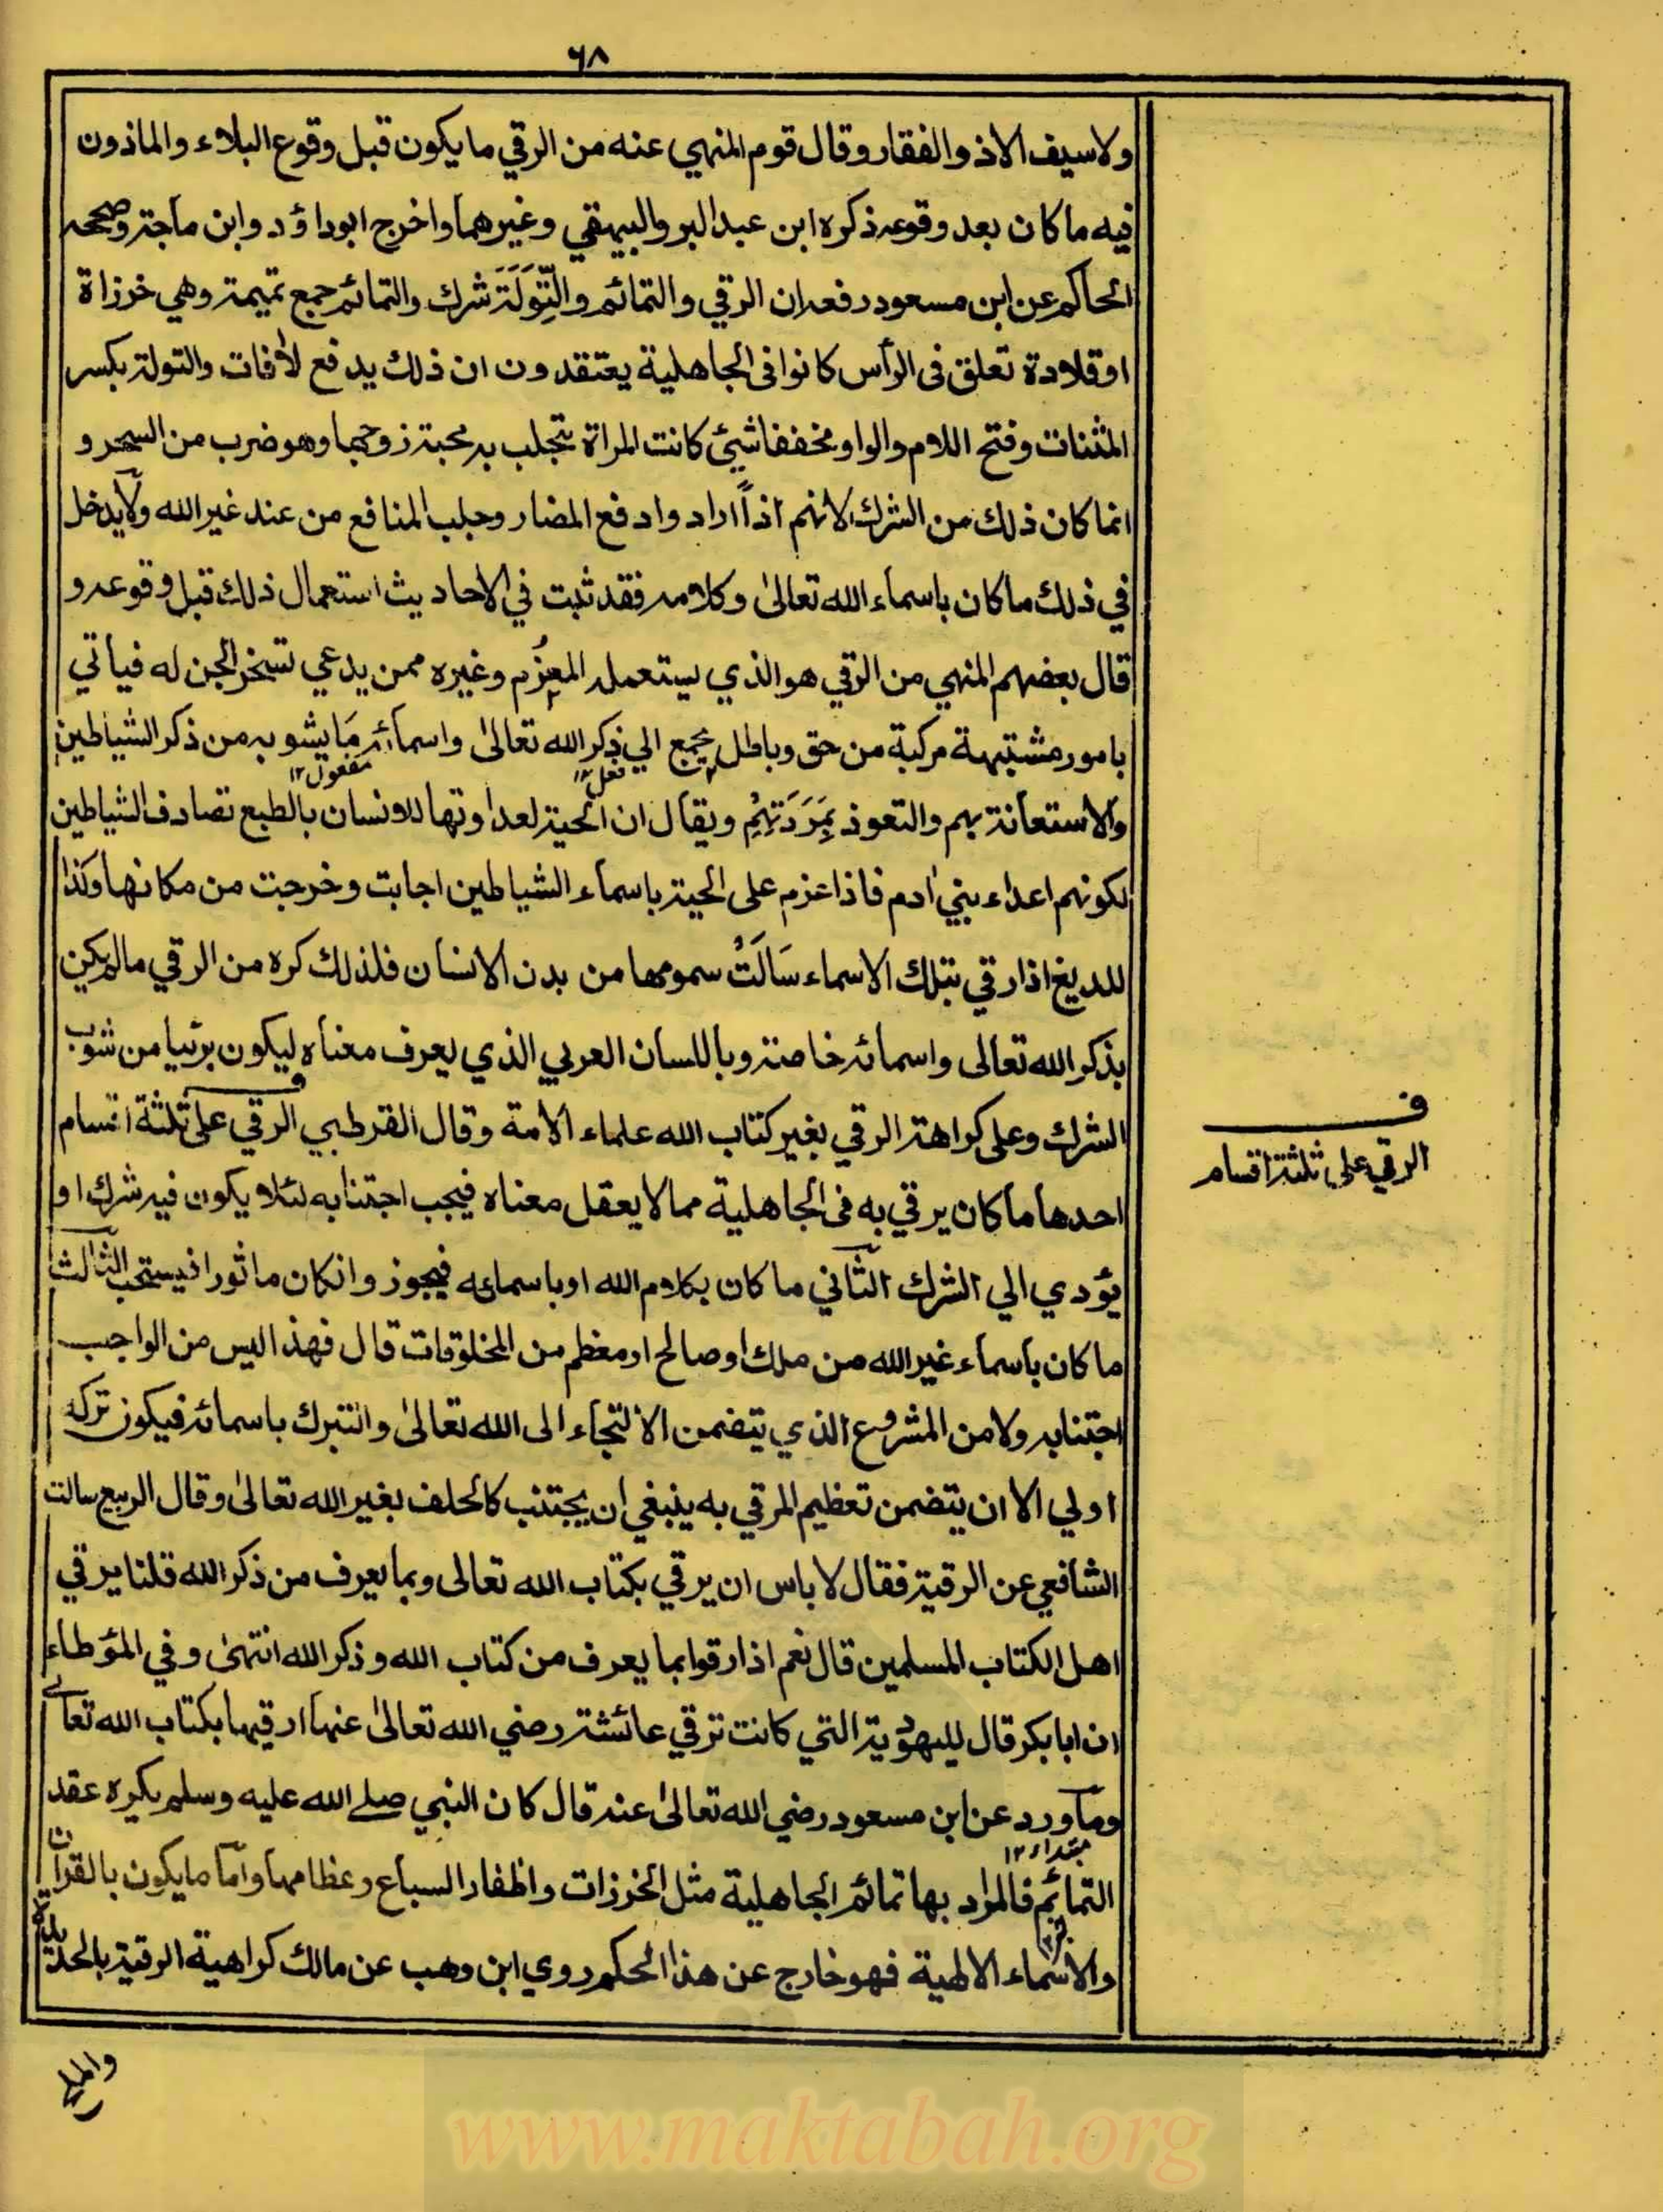 ٦٨
ولاسيف الاذ والفقار وقال قوم المنهي عنه من الرقي ما يكون قبل وقوع البلاء والماذون
فيه ما كان بعد وقوعه ذكره ابن عبد البر والبيهقي وغيرهما واخرج ابوداؤد وابن ماجة وصححه
الحاكم عن ابن مسعود رفعه ان الرقي والتمائم والتِّوَلَةَ شرك والتمائم جمع تميمة وهي خرزاة
اوقلادة تعلق فى الرأس كانوا فى الجاهلية يعتقدون ان ذلك يدفع لأفات والتولة بكسر
المثنات وفتح اللام والواو مخففا شيئ كانت المراة تجلب به محبة زوجها وهو ضرب من السحر و
انما كان ذلك من الشرك لانهم اذاً ارادوا دفع المضار وجلب المنافع من عند غير الله ولا يدخل
في ذلك ما كان باسماء الله تعالىٰ وكلامه فقد ثبت في الاحاديث استعمال ذلك قبل وقوعه و
قال بعضهم المنهي من الرقي هو الذي يستعمله المعزُم وغيره ممن يدعي تسخر الجن له فياتي
بامور مشتبهة مركبة من حق وباطل يجمع الي ذكر الله تعالىٰ واسمائه مَا يشوبه من ذكر الشياطين
فعل١٢ مفعول١٢
والاستعانة بهم والتعوذ بِمَرَدَتِهِمْ ويقال ان الحية لعداوتها للانسان بالطبع تصادف الشياطين
لكونهم اعداء بني ادم فاذا عزم على الحية باسماء الشياطين اجابت وخرجت من مكانها وكذا
للديغ اذا رقي بتلك الاسماء سَالَتْ سمومها من بدن الانسان فلذلك كره من الرقي مالم يكن
بذكر الله تعالى واسمائه خاصة وباللسان العربي الذي يعرف معناه ليكون برئيا من شوب
الشرك وعلى كراهة الرقي بغير كتاب الله علماء الامة وقال القرطبي الرقي على ثلثة اقسام
احدها ما كان يرقي به فى الجاهلية مما لا يعقل معناه فيجب اجتنابه لئلا يكون فيه شرك او
يؤدي الي الشرك الثاني ما كان بكلام الله اوباسمائه فيجوز وانكان ماثورا فيستحب الثالث
ما كان باسماء غير الله من ملك اوصالح او معظم من المخلوقات قال فهذا ليس من الواجب
اجتنابه ولا من المشروع الذي يتضمن الالتجاء الى الله تعالىٰ والتبرك باسمائه فيكون تركه
اولي الا ان يتضمن تعظيم المرقي به ينبغي ان يجتنب كالحلف بغير الله تعالىٰ وقال الربيع سالت
الشافعي عن الرقية فقال لا باس ان يرقي بكتاب الله تعالى وبما يعرف من ذكر الله قلنا يرقي
اهل الكتاب المسلمين قال نعم اذا رقوا بما يعرف من كتاب الله وذكر الله انتهىٰ وفي المؤطاء
ان ابا بكر قال لليهودية التي كانت ترقي عائشة رضي الله تعالىٰ عنها ارقيها بكتاب الله تعالى
وما ورد عن ابن مسعود رضي الله تعالىٰ عنه قال كان النبي صلے الله عليه وسلم يكره عقد
مبتداء ١٢
التمائم فالمراد بها تمائم الجاهلية مثل الخرزات واظفار السباع وعظامها واما ما يكون بالقران
والاسماء الالهية فهو خارج عن هذا الحكم روي ابن وهب عن مالك كراهية الرقية بالحديدة
والملح
ف
الرقي على ثلثة اقسام
www.maktabah.org